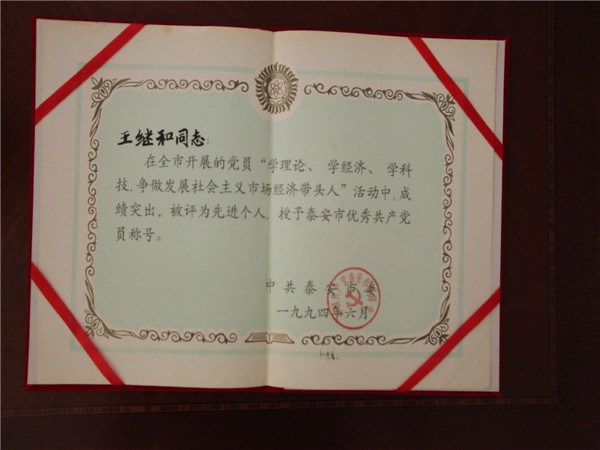 王继和同志:
在全市开展的党员“学理论、学经济、学科
技,争做发展社会主义市场经济带头人”活动中,成
绩突出,被评为先进个人,授予泰安市优秀共产党
员称号。
中共泰安市委
一九九四年六月